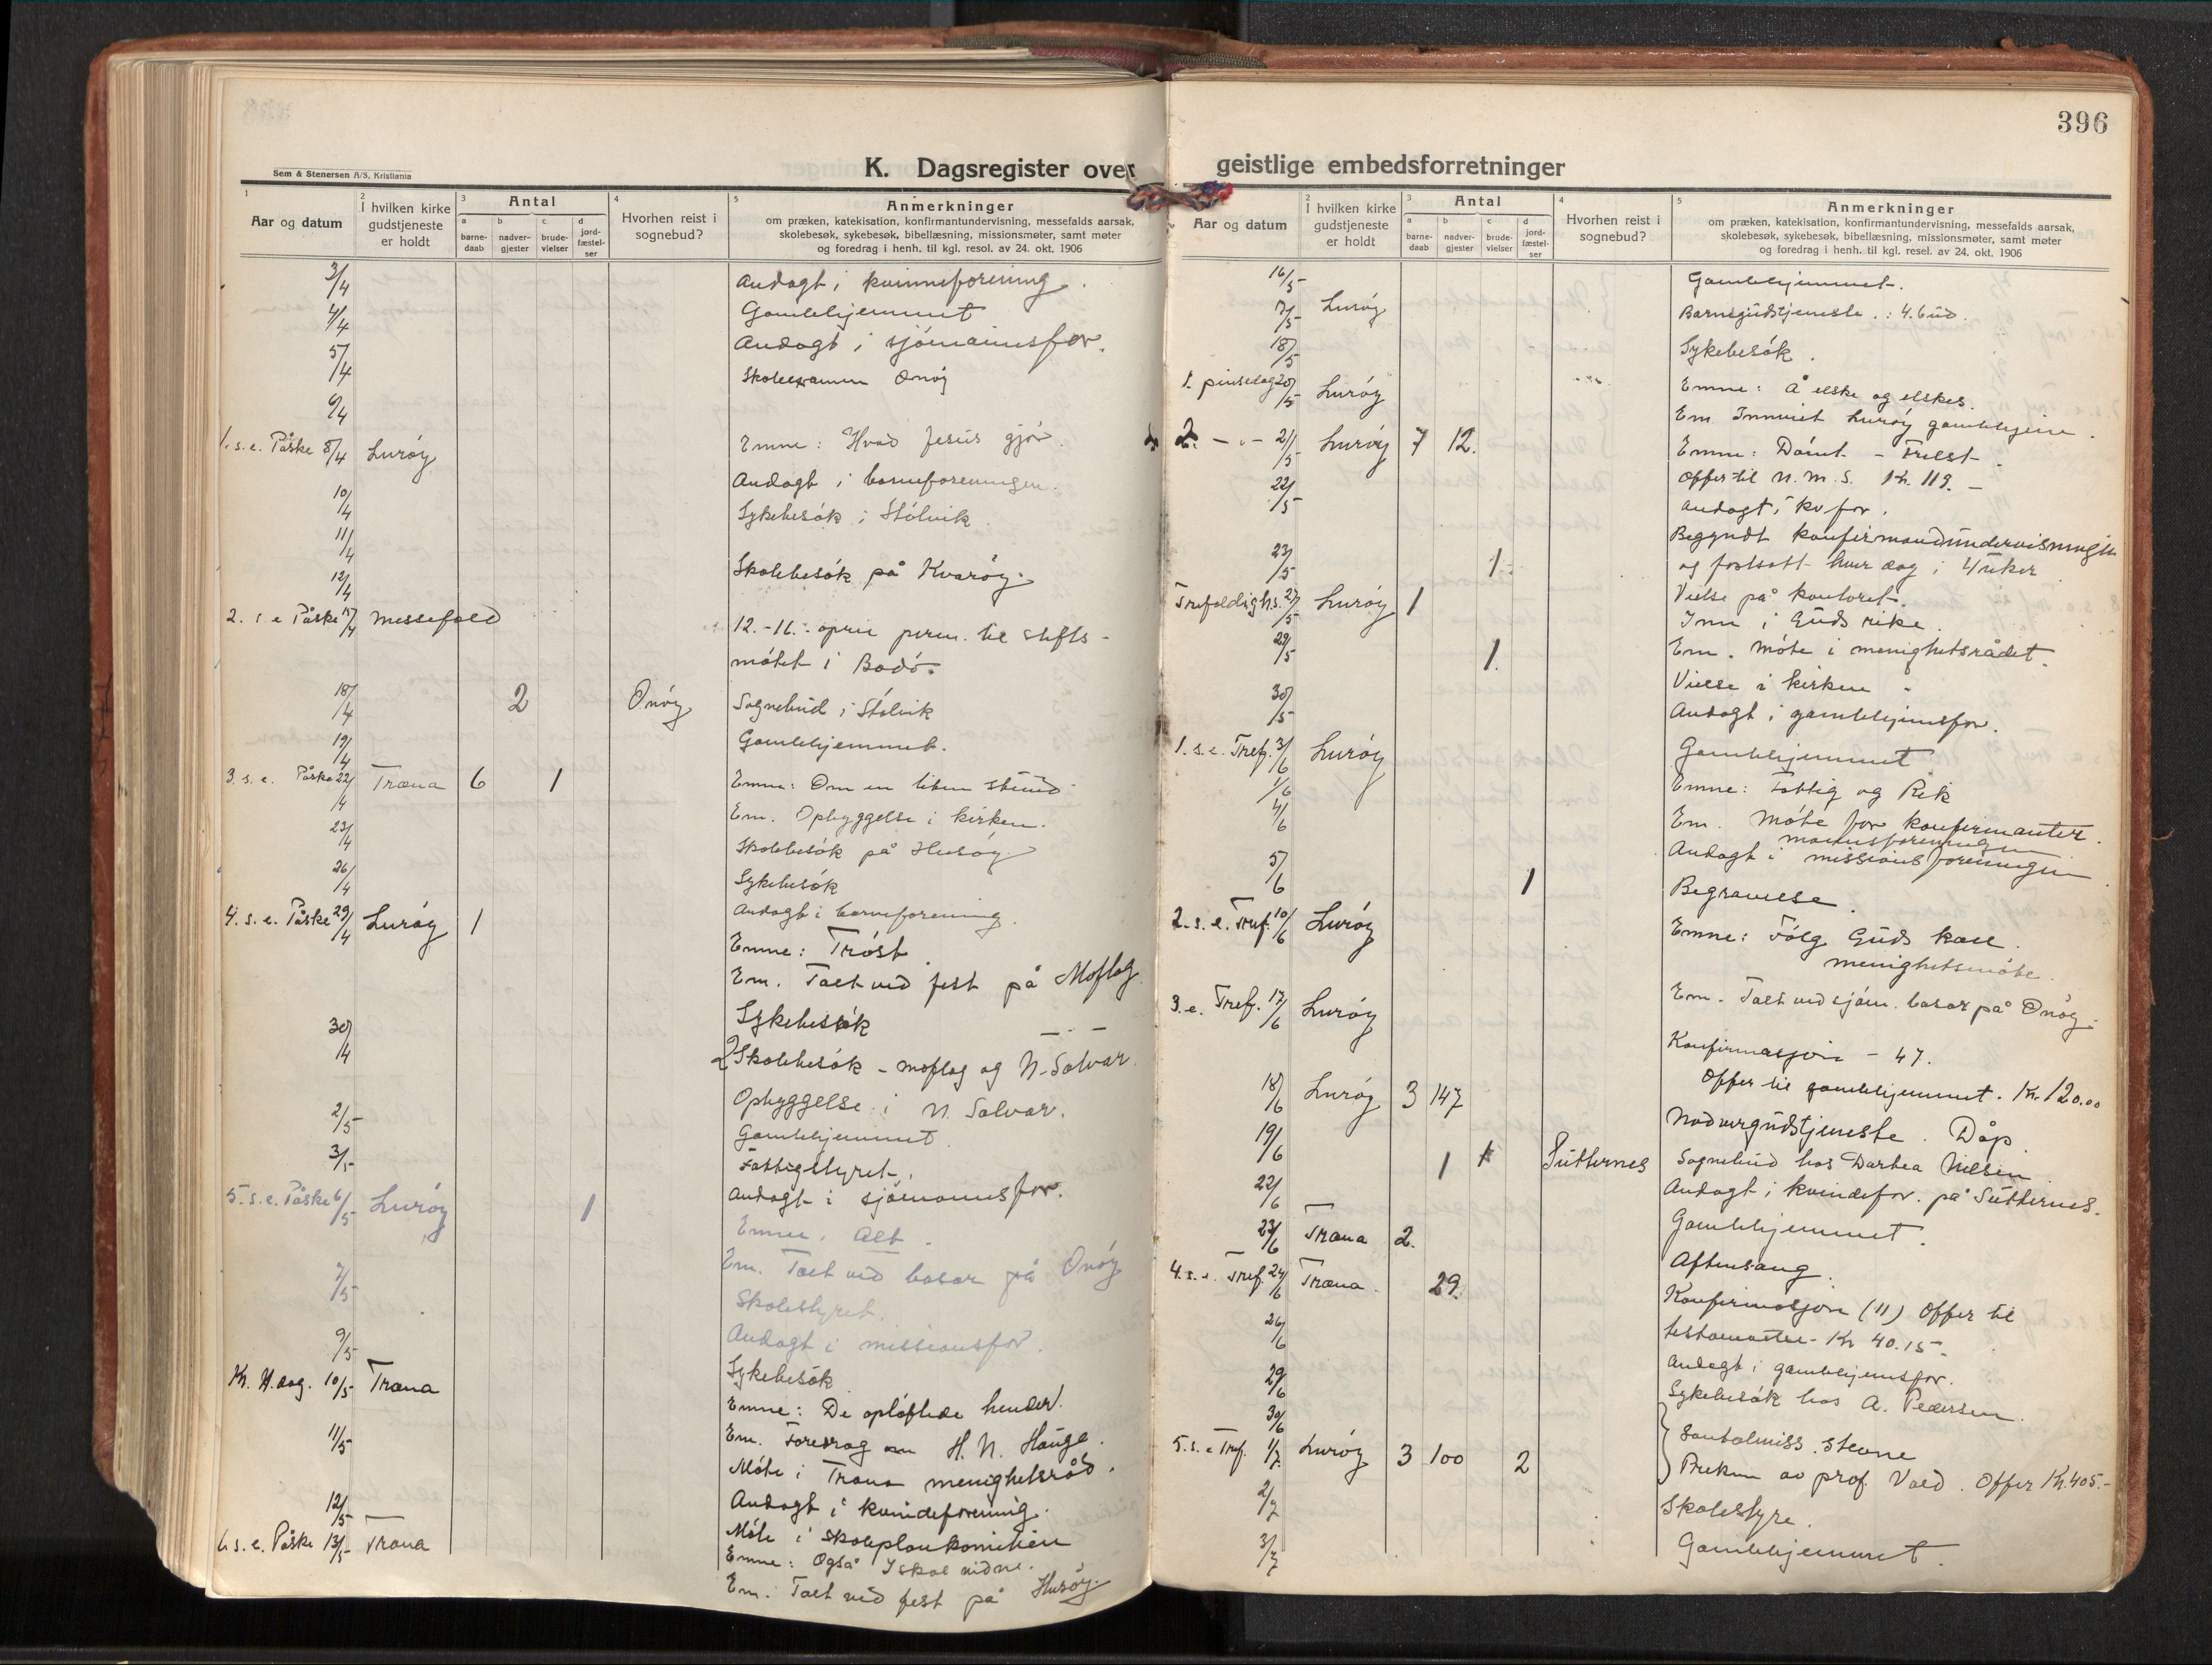 396
K. Dagsregister over geistlige embedsforretninger
Sem & Stenersen A/S, Kristiania
1 Aar og datum
2 I hvilken kirke gudstjeneste er holdt
3 Antal
a barne-daab
b nadver-gjester
c brude-vielser
d jord-fæstel-ser
4 Hvorhen reist i sognebud?
5 Anmerkninger
om præken, katekisation, konfirmantundervisning, messefalds aarsak,
skolebesøk, sykebesøk, bibellæsning, missionsmøter, samt møter
og foredrag i henh. til kgl. resol. av 24. okt. 1906
3/4 Andagt i kvinneforening.
4/4 Gamlehjemmet
5/4 Andagt i sjömannsfor.
Skoleexamen Onöy
6/4
1. s. e. Påske 8/4 Luröy Emne: Hvad Jesus gjör.
Andagt i barneforeningen.
10/4 Sykebesök i Stölvik.
11/4
12/4 Skolebesök på Kvaröy.
2. s. e Påske 15/4 Messefald 12.-16. april perm. til stifts-
mötet i Bodö.
18/4 2 Onöy Sognebud i Stölvik
19/4 Gamlehjemmet.
3. s. e. Påske 22/4 Træna 6 1 Emne: Om en liten stund
Em. Opbyggelse i kirken.
23/4 Skolebesök på Husöy
26/4 Sykebesök
Andagt i barneforening.
4. s. e. Påske 29/4 Luröy 1 Emne: Tröst.
Em. Talt ved fest på Moflag
Sykebesök
30/4 2 Skolebesök - Moflag og N-Solvær.
Opbyggelse i N. Solvær.
2/5 Gamlehjemmet.
3/5 Fattigstyret.
Andagt i sjömannsfor.
5. s. e. Påske 6/5 Luröy 1 Emne: Alt.
Em. Talt ved basar på Onöy
7/5 Skolestyret.
Andagt i missionsfor.
9/5 Sykebesök
Kr. H. dag. 10/5 Træna Emne: De oplöftede hender.
Em. Foredrag om H. N. Hauge.
11/5 Möte i Træna menighetsråd.
Andagt i kvindeforening.
12/5 Möte i skoleplankomiteen
6 s. e. Påske 13/5 Træna Emne: Også I skal vidne.
Em. Talt ved fest på Husöy.
1 Aar og datum
2 I hvilken kirke gudstjeneste er holdt
3 Antal
a barne-daab
b nadver-gjester
c brude-vielser
d jord-fæstel-ser
4 Hvorhen reist i sognebud?
5 Anmerkninger
om præken, katekisation, konfirmantundervisning, messefalds aarsak,
skolebesøk, sykebesøk, bibellæsning, missionsmøter, samt møter
og foredrag i henh. til kgl. resel. av 24. okt. 1906
16/5 Gamlehjemmet.
17/5 Luröy Barnegudstjeneste.: 4. bud.
18/5 Sykebesök.
1. pinsedag 20/5 Luröy Emne: Å elske og elskes.
Em. Innviet Luröy gamlehjem.
2. - " - 21/5 Luröy 7 12. Emne: Dömt - Frelst.
Offer til N. M. S. Kr. 119.-
22/5 Andagt i kv for.
Begyndt konfirmandundervisningen
og fortsatt hver dag i 4 uker
23/5 1 Vielse på kontoret.
Trefoldighs. 27/5 Luröy 1 Inn i Guds rike.
Em. Möte i menighetsrådet.
29/5 1. Vielse i kirken.
30/5 Andagt i gamlehjemsfor.
1. s. e. Tref. 3/6 Luröy Gamlehjemmet
1/6 Emne: Fattig og Rik
4/6 Em. Möte for konfirmanter.
Andagt i missionsforeningen
5/6 1 Begravelse.
2. s. e. Tref. 10/6 Luröy Emne: Fölg Guds kall.
menighetsmöte.
Em. Talt ved sjöm. basar på Onöy.
3. e. Tref. 17/6 Luröy Konfirmasjon - 47.
Offer til gamlehjemmet. Kr. 120.00
18/6 Luröy 3 147 Nadvergudstjeneste. Dåp
19/6 1 1 Sutternes Sognebud hos Dorthea Nilsen
Andagt i kvindefor. på Sutternes.
22/6 Gamlehjemmet.
23/6 Træna 2. Aftensang.
4. s. e. Tref. 24/6 Træna 29. Konfirmasjon (11) Offer til
Kr 40.15
26/6 Andagt i gamlehjemsfor.
29/6 Sykebesök hos A. Pedersen.
30/6 Santalmiss. stevne
5. s. e Tref. 1/7 Luröy 3 100 2 Preken av prof. Vold. Offer Kr. 405.-
2/7 Skolestyre.
3/7 Gamlehjemmet.